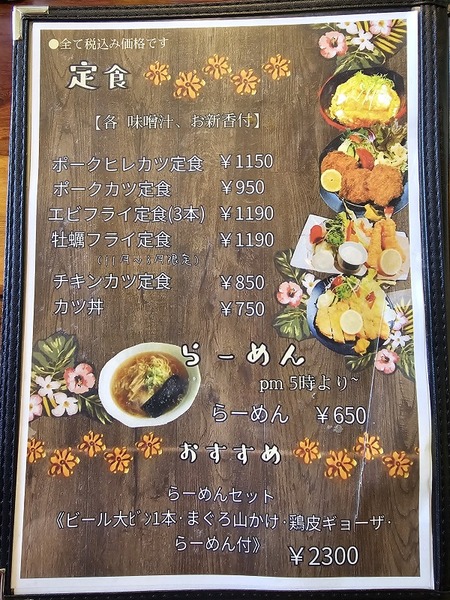 ●全て税込み価格です
定食
【各 味噌汁、お新香付】
ポークヒレカツ定食 ￥1150
ポークカツ定食 ￥950
エビフライ定食(3本) ￥1190
牡蠣フライ定食 ￥1190
チキンカツ定食 ￥850
カツ丼 ￥750
らーめん
pm 5時より~
らーめん ￥650
おすすめ
らーめんセット
《ビール大ビン1本・まぐろ山かけ・鶏皮ギョーザ・
らーめん付》 ￥2300